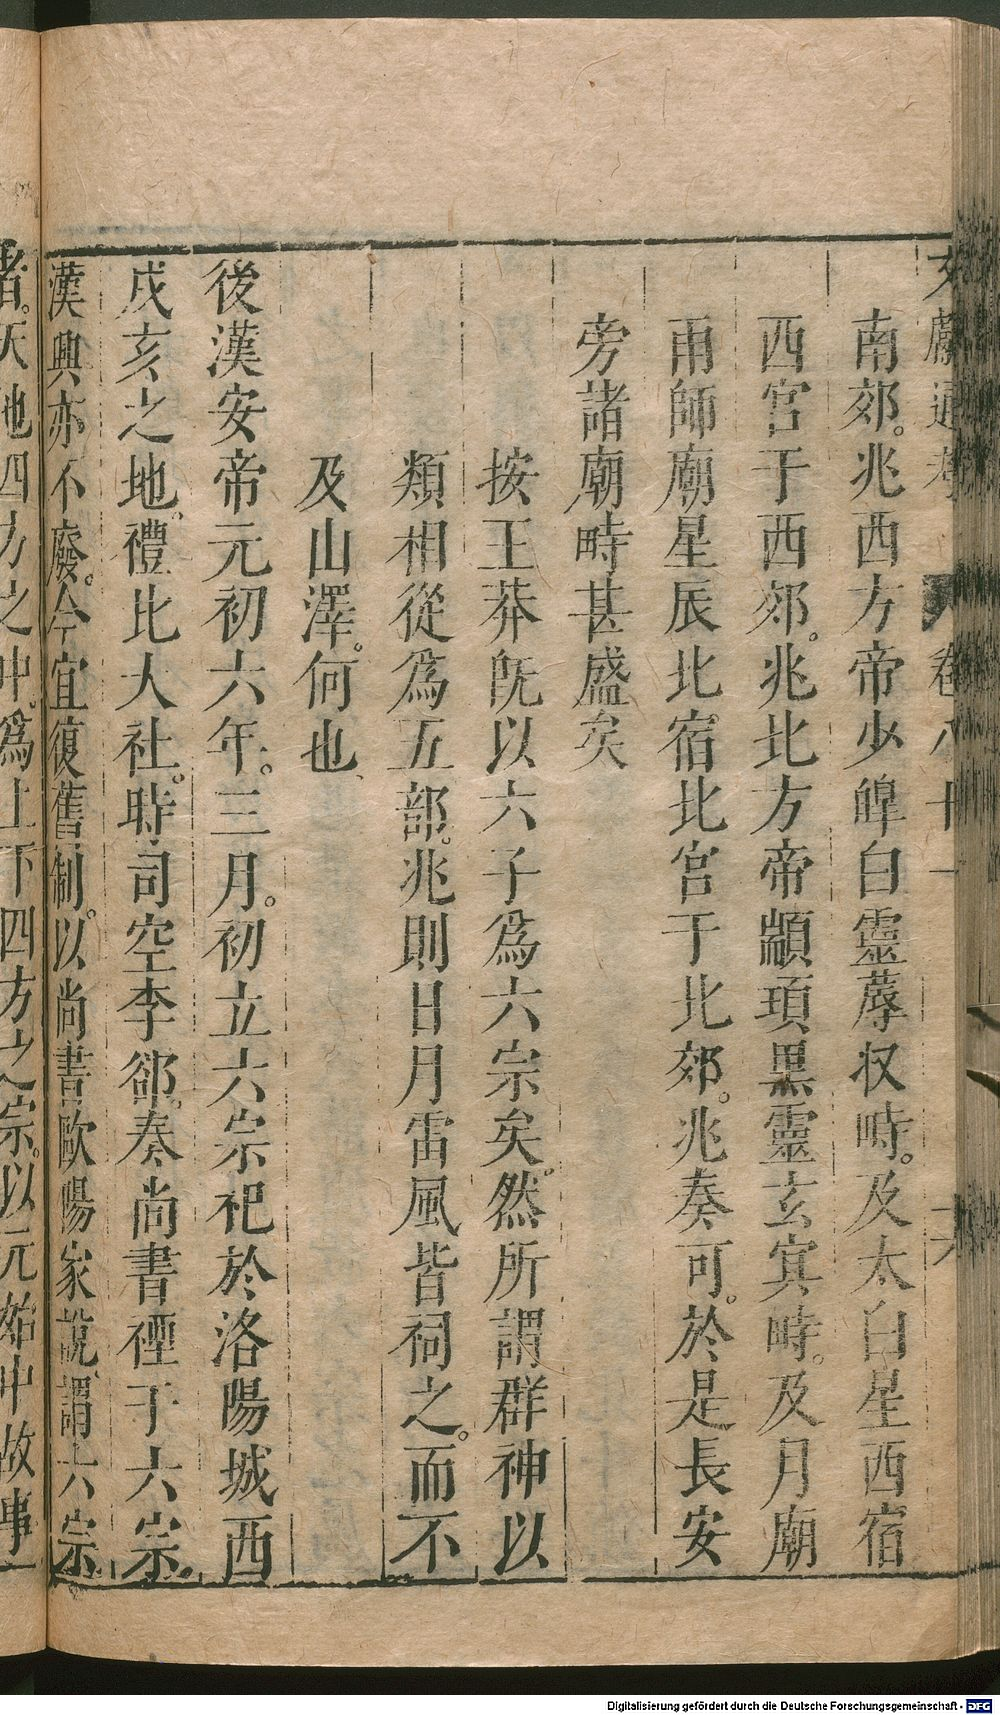 文獻通考 卷八十一 六
南郊。兆西方帝少皞白靈蓐收畤。及太白星西宿
西宮于西郊。兆北方帝顓頊黑靈玄冥畤。及月廟
雨師廟星辰北宿北宮于北郊。兆奏可。於是長安
旁諸廟畤甚盛矣
按王莽既以六子為六宗矣。然所謂群神以
類相從為五部。兆則日月雷風皆祠之。而不
及山澤。何也
後漢安帝元初六年。三月。初立六宗祀於洛陽城西
戌亥之地。禮比大社。時司空李郃。奏尚書禋于六宗。
漢興亦不廢。今宜復舊制。以尚書歐陽家說。謂六宗
者。天地四方之中。為上下四方之宗。以元始中故事
Digitalisierung gefördert durch die Deutsche Forschungsgemeinschaft - DFG